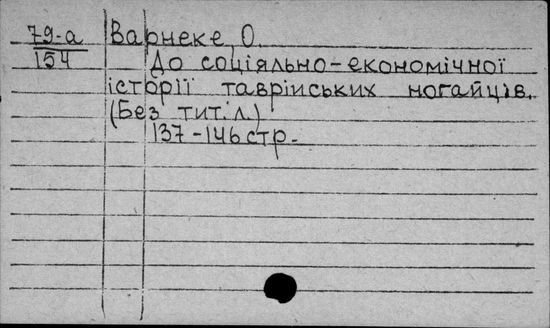 79-а Варнеке, О.
154 До соціяльно-економічної
історії таврійських ногайців.
(Без тит. л.)
137-146 стр.